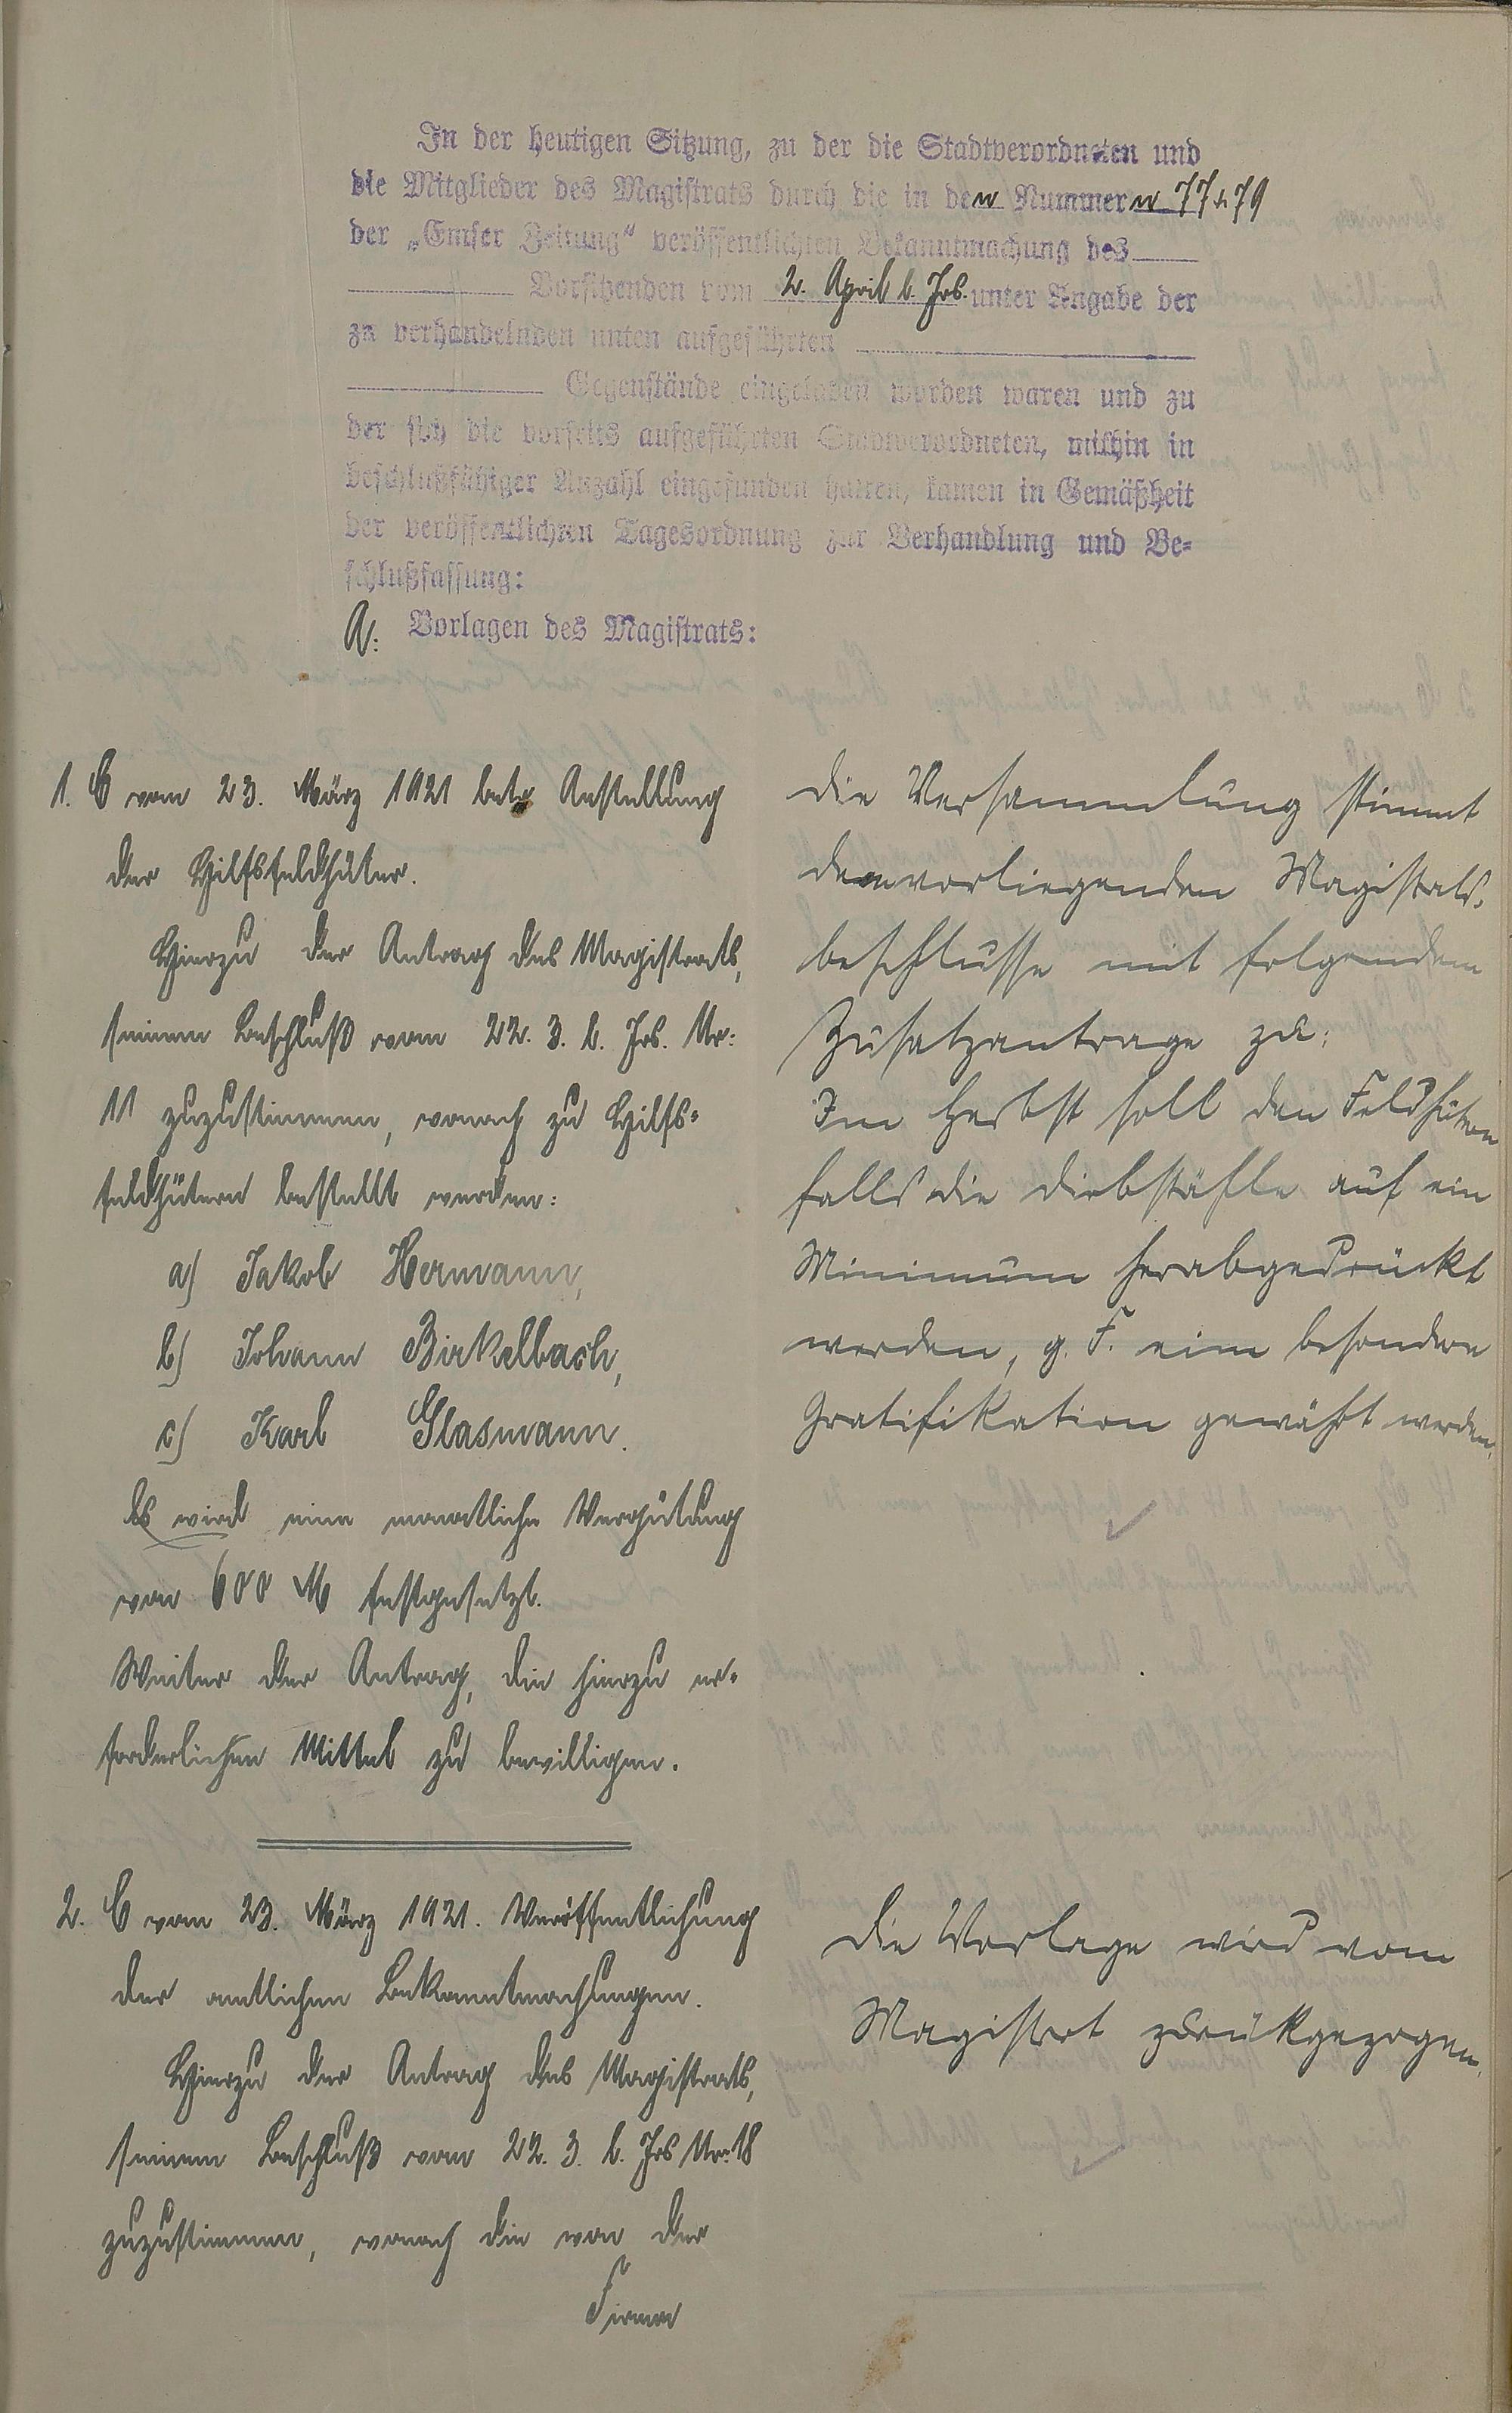 In der heutigen Sitzung, zu der die Stadtverordneten und
die Mitglieder des Magistrats durch die in den Nummern 77 u. 79
der „Emser Zeitung“ veröffentlichten Bekanntmachung des
Vorsitzenden vom 2. April l. Jrs. unter Angabe der
zu verhandelnden unten aufgeführten
Gegenstände eingeladen worden waren und zu
der sich die vorseits aufgeführten Stadtverordneten, mithin in
beschlußfähiger Anzahl eingefunden hatten, kamen in Gemäßheit
der veröffentlichten Tagesordnung zur Verhandlung und Be-
schlußfassung:
A. Vorlagen des Magistrats:
1. E vom 23. März 1921 betr. Anstellung
der Hilfsfeldhüter.
Hierzu der Antrag des Magistrats,
seinem Beschluß vom 22. 3. l. Jrs. Nr:
11 zuzustimmen, wonach zu Hilfs-
feldhütern bestellt werden:
a) Jakob Hermann,
b) Johann Birkelbach,
c) Karl Glasmann.
Es wird eine monatliche Vergütung
von 600 M festgesetzt.
Weiter der Antrag, die hierzu er-
forderlichen Mittel zu bewilligen.
Die Versammlung stimmt
dem vorliegenden Magistrats-
beschlusse mit folgendem
Zusatzantrage zu:
Im Herbst soll den Feldhütern
falls die Diebstähle auf ein
Minimum herabgedrückt
werden, g. F. eine besondere
Gratifikation gewährt werden.
2. E vom 23. März 1921. Veröffentlichung
der amtlichen Bekanntmachungen.
Hierzu der Antrag des Magistrats,
seinem Beschluß vom 22. 3. l. Jrs Nr: 18
zuzustimmen, wonach die von der
Firma
Die Vorlage wird vom
Magistrat zurükgezogen.